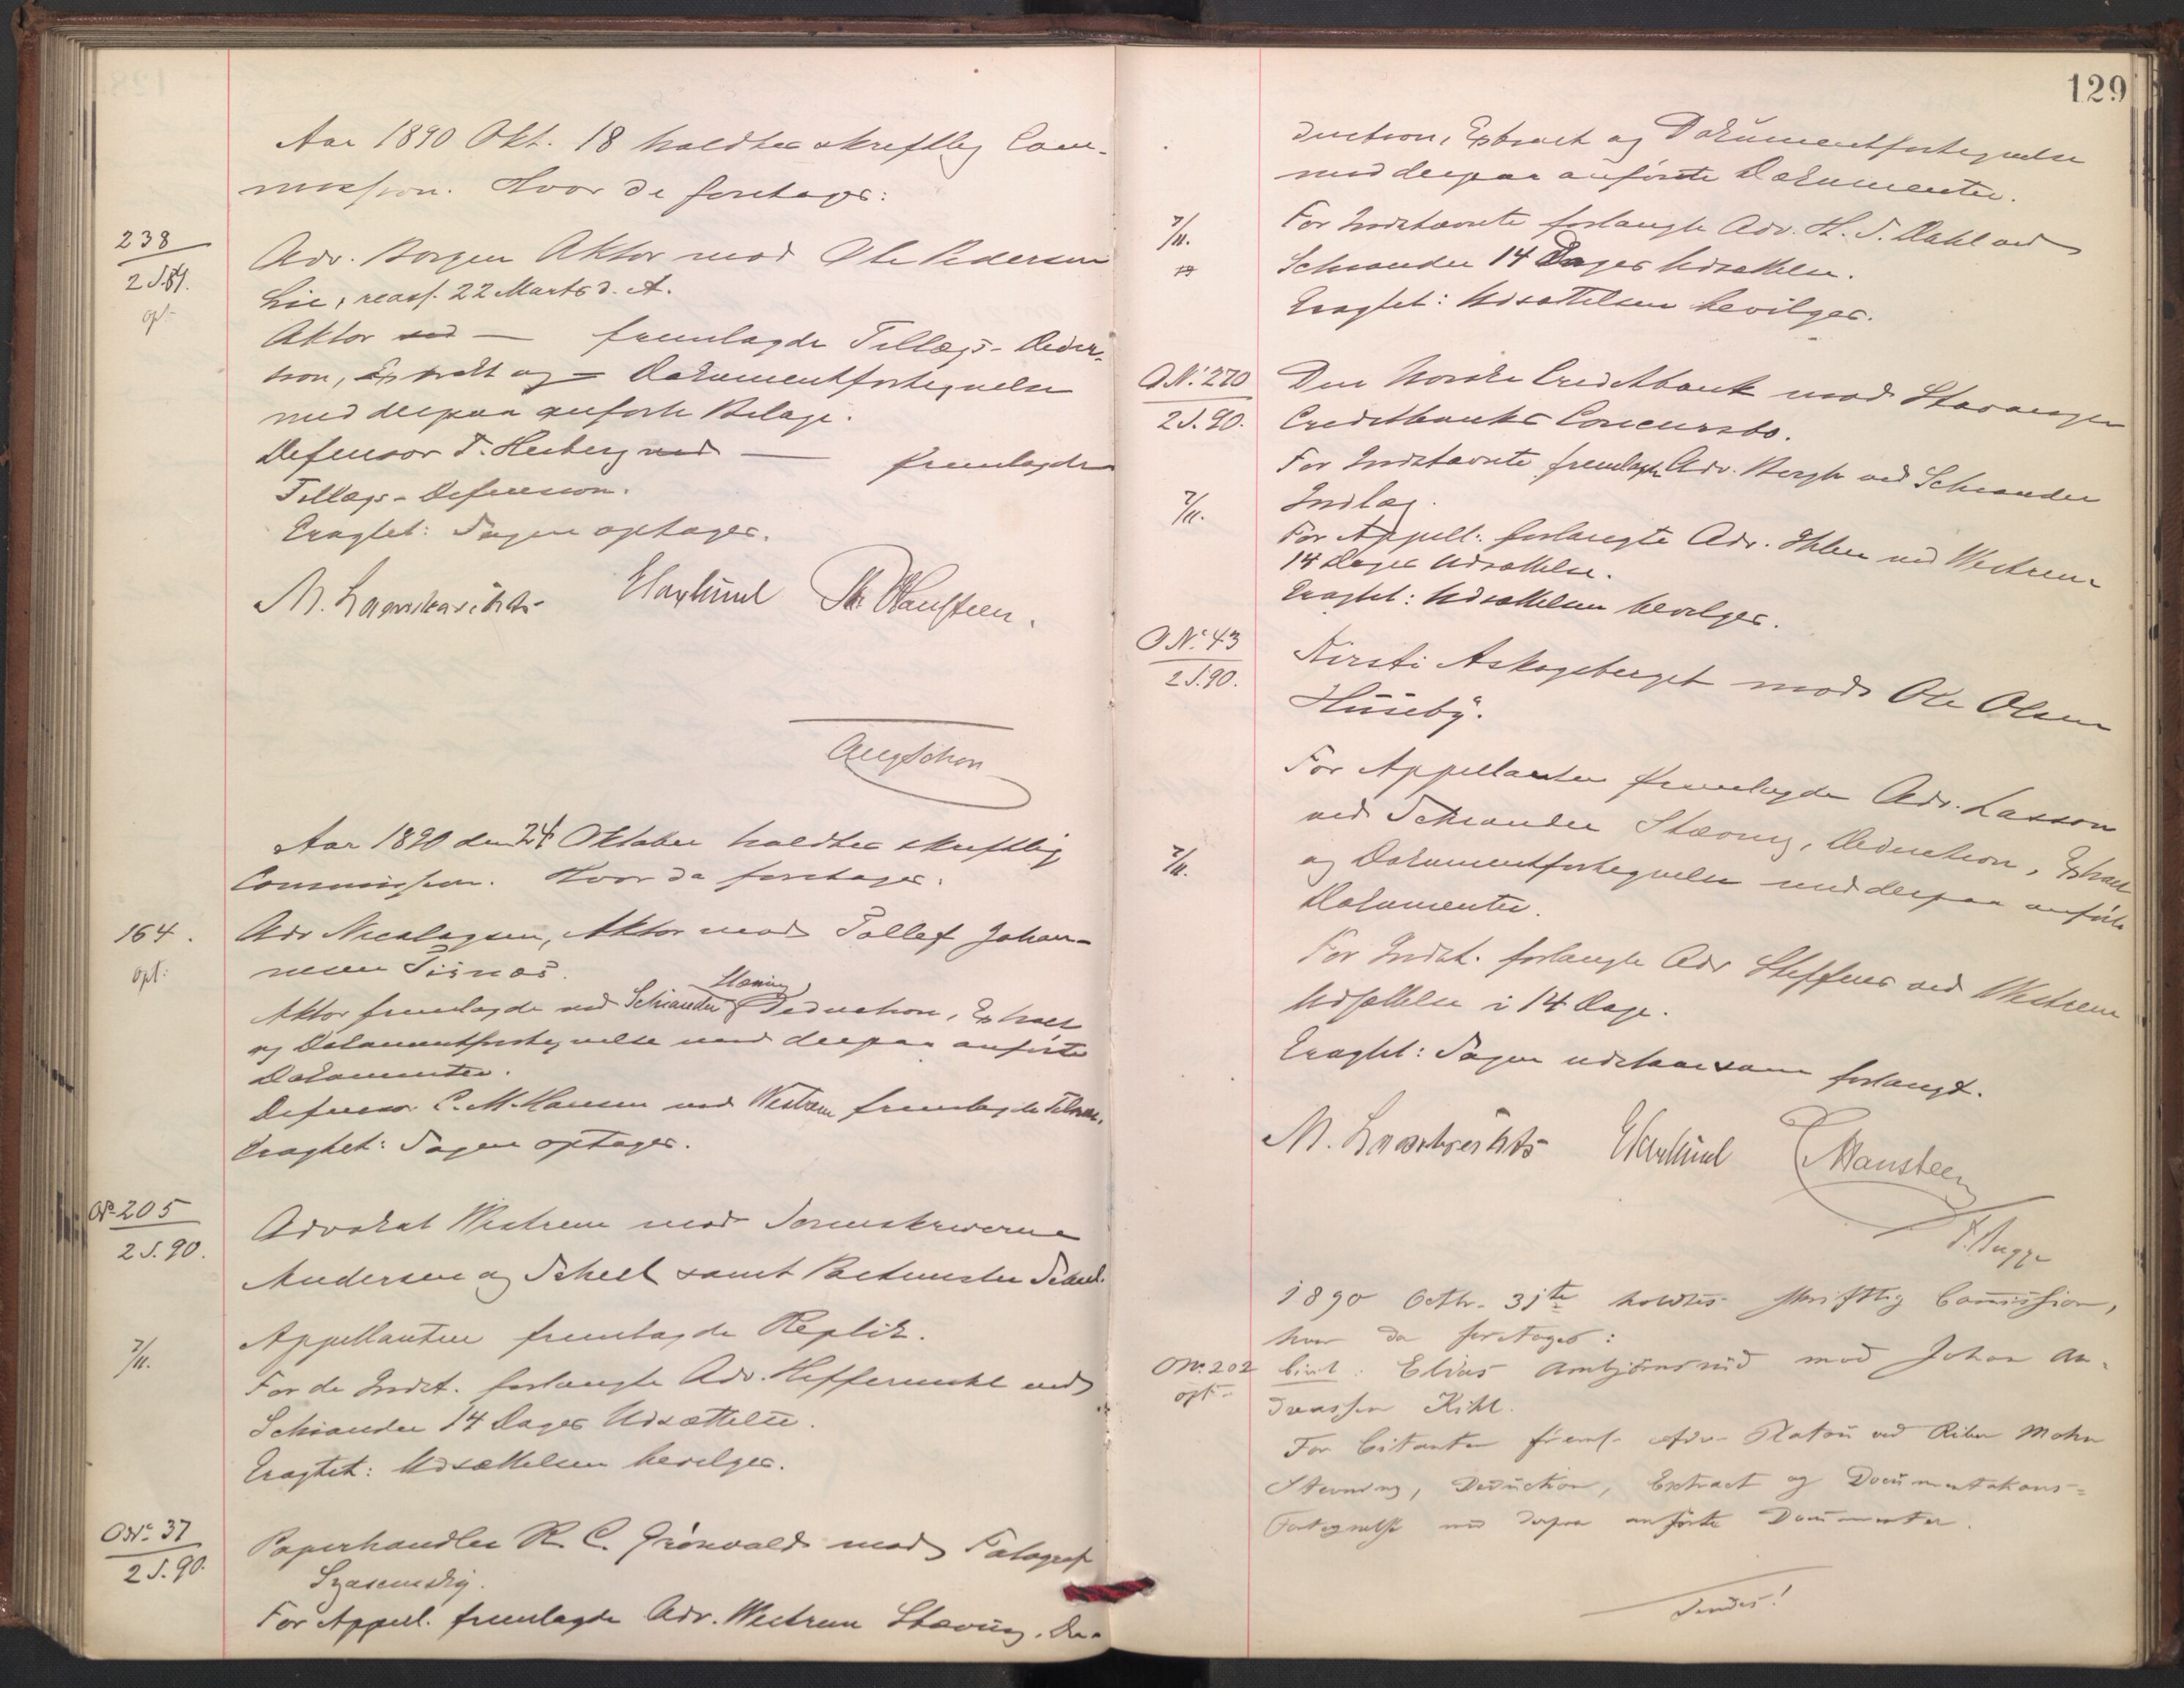 Aar 1890 Okt. 18 holdtes skriftlig Com-
mission. Hvor da foretoges:
238
2 S. 89.
opt.
Adv. Borgen Aktor mod Ole Pedersen
Lie, reass. 22 Marts d. A.
Aktor ved — fremlagde Tillægs-Deduc-
tion, Extrakt og Dokumentfortegnelse
med derpaa anførte Bilage.
Defensor T. Heiberg ved — fremlagde
Tillægs-Defension.
Eragtet: Sagen optages.
Aar 1890 den 24 Oktober holdtes skriftlig
Commission. Hvor da foretoges:
164.
opt:
Adv Nicolaysen, Aktor mod Tollef Johan-
nesen
Stævning,
Aktor fremlagde ved Schiander Deduction, Extract
og Dokumentfortegnelse med derpaa anførte
Dokumenter.
Defensor C. M. Hansen ved Westrum fremlagde
Eragtet: Sagen optages.
O No 205
2 S. 90.
Advokat Westrum mod Sorenskriverne
Andersen og Scheel samt
7/11.
Appellanten fremlagde Replik.
For de Indst. forlangte Adv. Heffermehl ved
Schiander 14 Dages Udsættelse.
Eragtet: Udsættelsen bevilges.
O No. 37
2 S. 90.
Papirhandler R. C. Grønvald mod Fotograf
For Appell. fremlagde Adv. Westrum Stævning, De-
129
duction, Extract og Dokumentfortegnelse
med derpaa anførte Dokumenter.
7/11.
For Indstævnte forlangte Adv. H. S. Dahl ved
Schiander 14 Dages Udsættelse.
Eragtet: Udsættelsen bevilges.
O N. 270
2 S. 90.
Den Norske Creditbank mod Stavanger
Creditbanks Concursbo.
For Indstævnte fremlagde Adv. Bergh ved Schiander
Indlæg.
7/11.
For Appell. forlangte Adv. Ihlen ved Westrum
14 Dages Udsættelse.
Eragtet: Udsættelsen bevilges.
O N. 43
2 S. 90.
Kirsti Askogsberget mod Ole Olsen
Huseby.
For Appellanten fremlagde Adv. Lasson
ved Schiander Stævning, Deduction, Extract
7/11.
og Dokumentfortegnelse med derpaa anførte
Dokumenter.
For Indst. forlangte Adv Steffens ved Westrum
Udsættelse i 14 Dage.
Eragtet: Sagen udstaar som forlangt.
1890 Octbr. 31te holdtes skriftlig Commission,
hvor da foretoges:
O No. 202
opt.
Civil: Elias Ambjørnsrud mod Johan An-
dreassen Kihl.
For Citanten freml. Adv. Platou ved Riber Mohn
Stevning, Deduction, Extract og Documentations-
Fortegnelse med derpaa anførte Documenter.
Vendes!